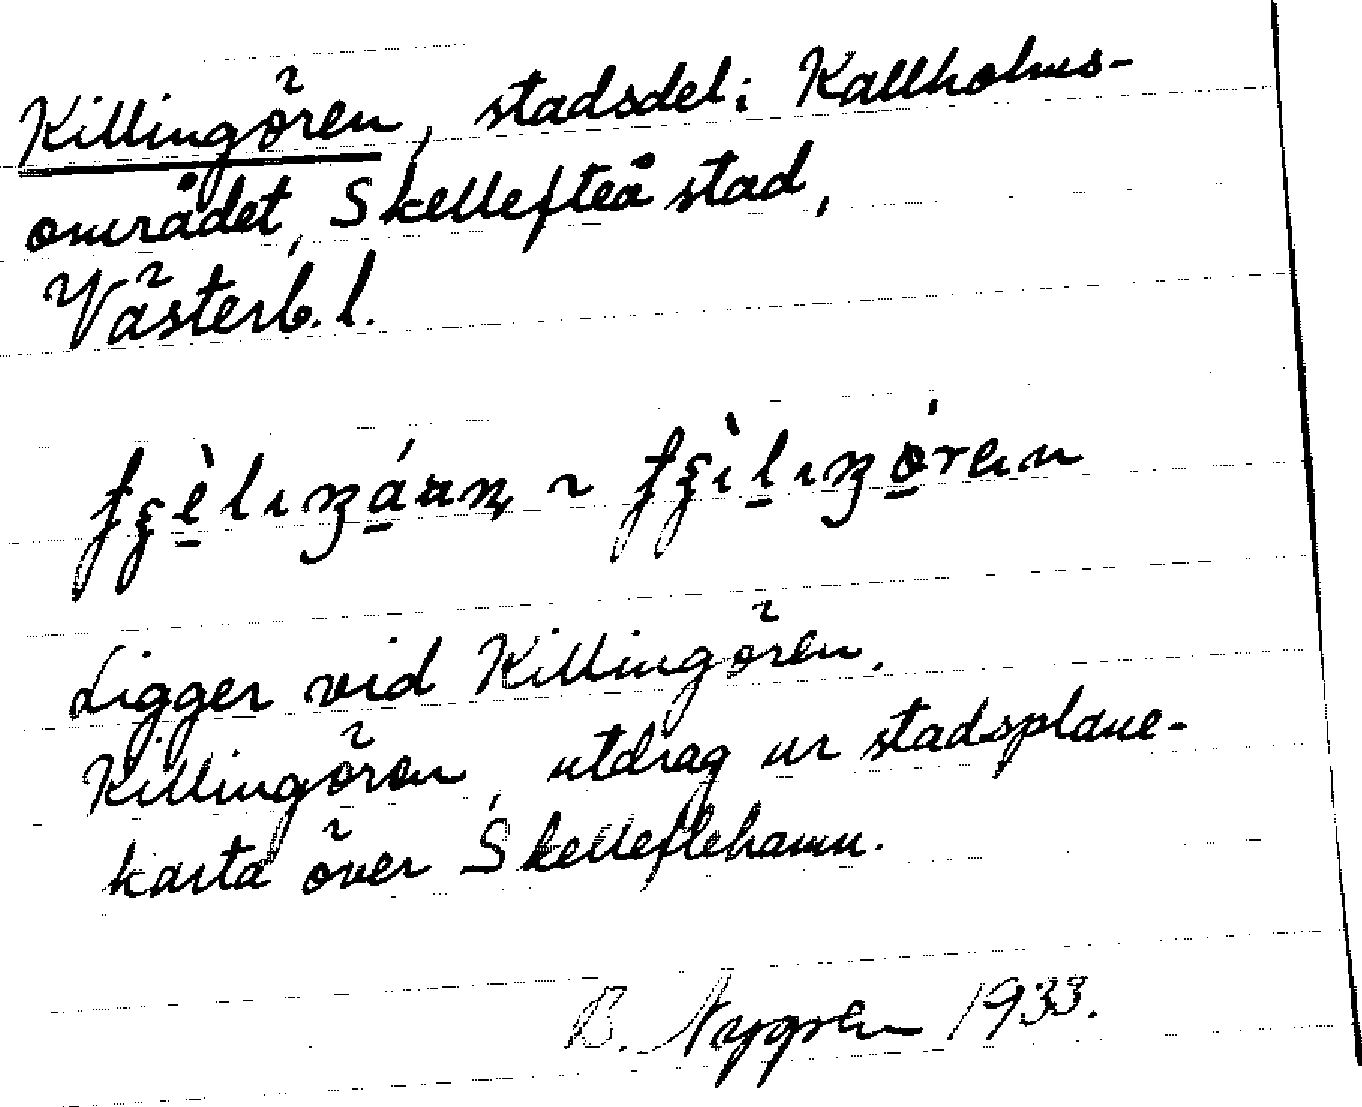 Killingören, stadsdel i Kallholms-
området, Skellefteå stad,
Västerb. l.
Ligger vid Killingören.
Killingören, utdrag ur stadsplane-
karta över Skelleftehamn.
B. Nygren 1933.